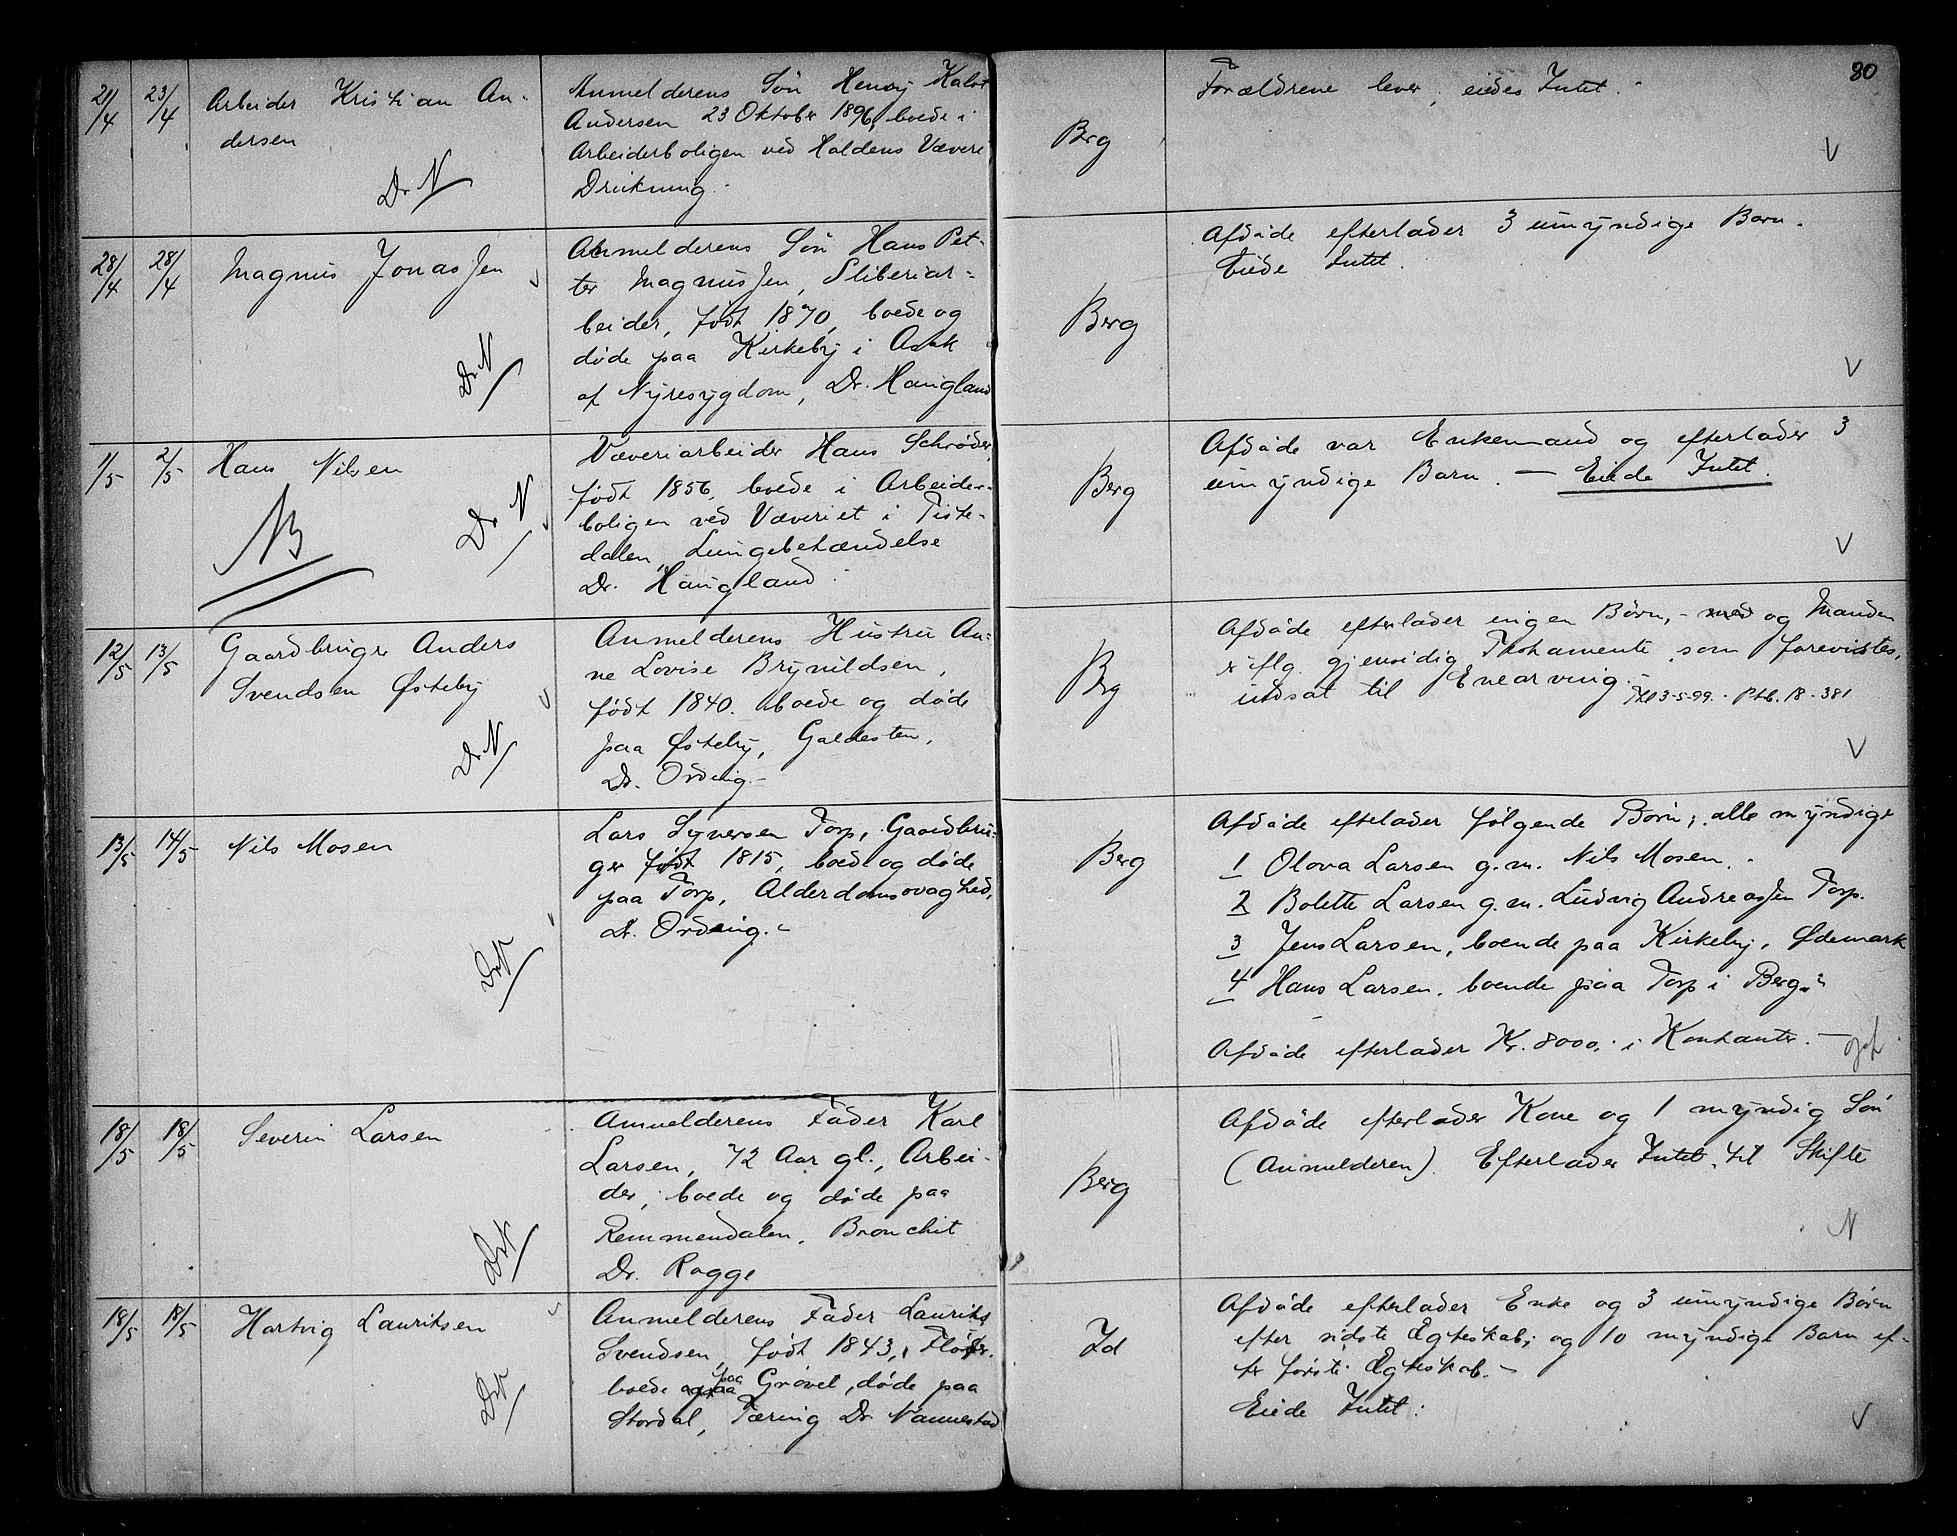 80
21/4 23/4 Arbeider Kristian An-
dersen
Dr N
Anmelderens Søn Henry Kalvt
Andersen 23 Oktober 1896, boede i
Arbeiderboligen ved Haldens Væveri
Drukning.-
Berg
Forældrene lever, eiedes Intet.-
V
28/4 28/4 Magnus Jonassen
Dr N
Anmelderens Søn Hans Pet-
ter Magnussen, Sliberiar-
beider, født 1870, boede og
døde paa Kirkeby i Asak
af Nyresygdom, Dr. Haugland
Berg
Afdøde efterlader 3 umyndige Barn.
Eiede Intet.
V
1/5 2/5 Hans Nilsen
NB
Dr N
Væveriarbeider Hans Schrøder,
født 1856, boede i Arbeider-
boligen ved Væveriet i Tiste-
dalen, Lungebetændelse
Dr. Haugland.
Berg
Afdøde var Enkemand og efterlader 3
umyndige Barn. — Eiede Intet.
V
12/5 13/5 Gaardbruger Anders
Svendsen Østeby
Dr N
Anmelderens Hustru An-
ne Lovise Brynildsen,
født 1840. boede og døde
paa Østeby, Galdesten,
Dr. Ording.-
Berg
Afdøde efterlader ingen Børn, - med og Manden
er iflg. gjensidig Testamente, som forevistes,
indsat til Enearving.-
Thl 3-5-99. - Ptb. 18 - 381
V
13/5 14/5 Nils Mosen
DrN
Lars Syversen Torp, Gaardbru-
ger født 1815, boede og døde
paa Torp, Alderdomssvaghed,
Dr. Ording.-
Berg
Afdøde efterlader følgende Børn; alle myndige
1 Olava Larsen g.m. Nils Mosen.-
2 Bolette Larsen g.m. Ludvig Andreassen Torp.
3 Jens Larsen, boende paa Kirkeby, Ødemark
4 Hans Larsen, boende paa Torp i Berg.-
Afdøde efterlader Kr. 8000,- i Kontanter.—
18/5 18/5 Severin Larsen
DrN
Anmelderens Fader Karl
Larsen, 72 Aar gl., Arbei-
der, boede og døde paa
Remmendalen, Bronchit
Dr. Rogge
Berg
Afdøde efterlader Kone og 1 myndig Søn
(Anmelderen). Efterlader Intet til Skifte
N
18/5 18/5 Hartvig Lauritsen
DrN
Anmelderens Fader Laurits
Svendsen, født 1843, Fløder.
boede paa Grøvet, døde paa
Stordal, Tæring Dr Nannestad
Id
Afdøde efterlader Enke og 3 umyndige Børn
efter sidste Ægteskab; og 10 myndige Barn ef-
ter første Ægteskab.-
Eiede Intet.
V